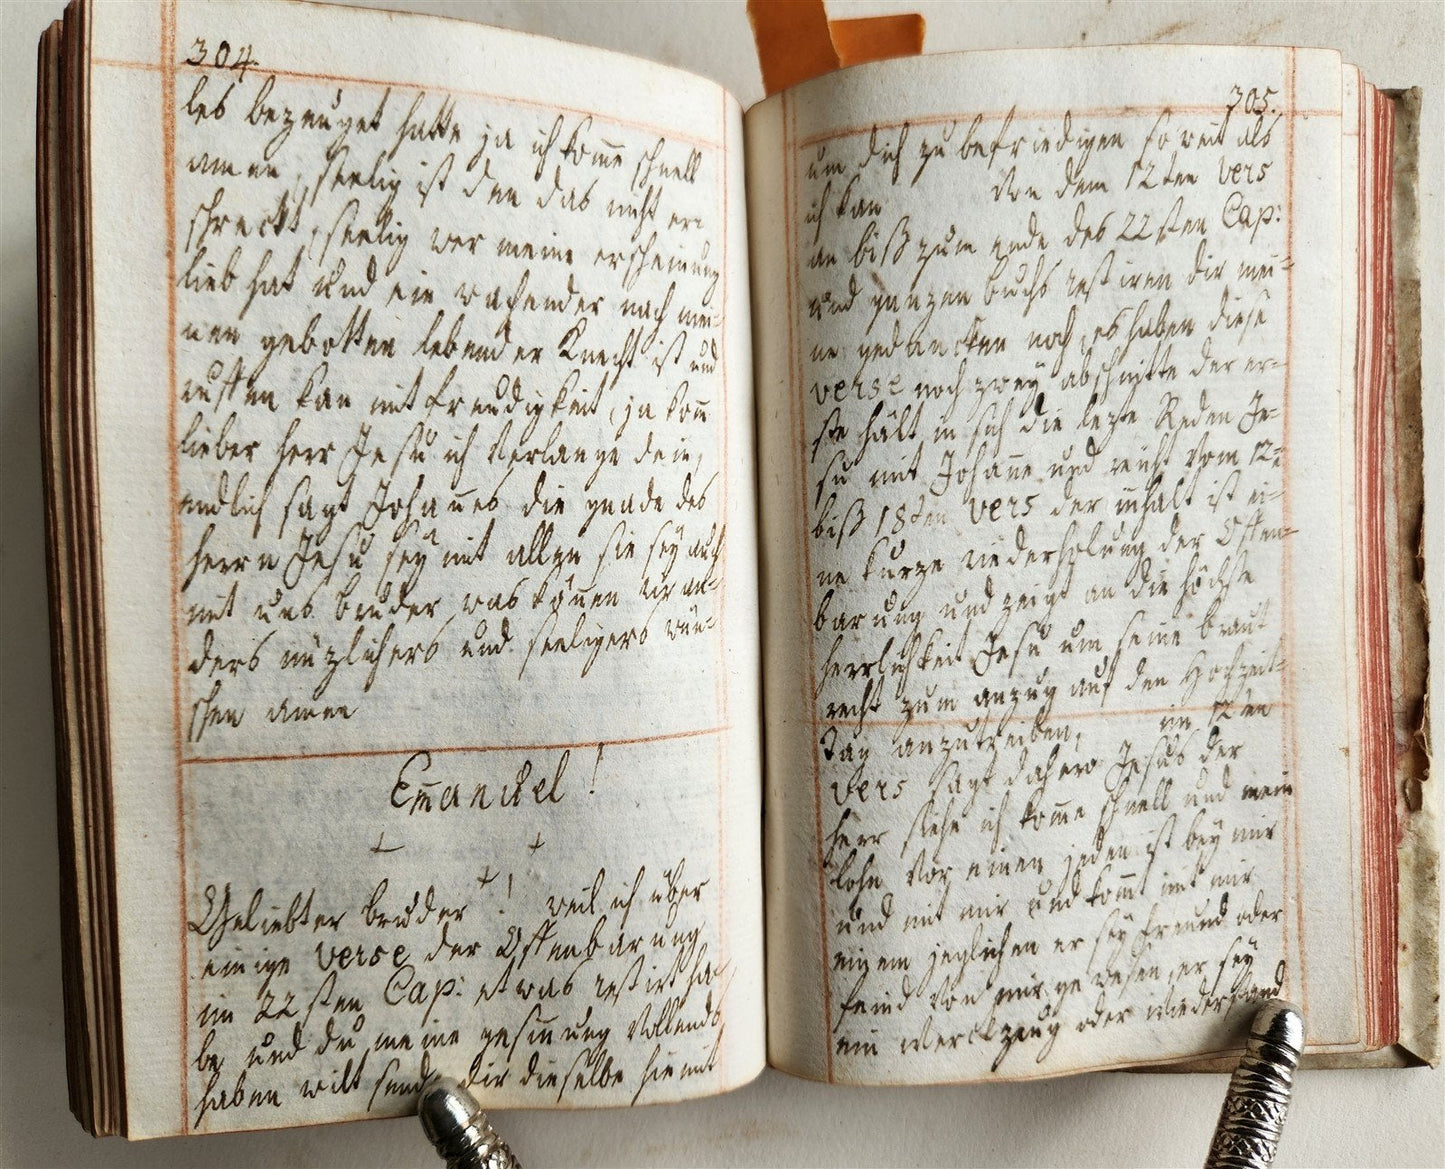 304.
les bezeuget hatte ja ich komme schnell
amen, seelig ist den das nicht er-
schreckt, seelig wer meine erscheinung
lieb hat und ein wachender nach mei-
nen gebotten lebender Knecht ist und
ruffen kan mit freudigkeit, ja kom̄
lieber herr Jesu ich verlange dein,
endlich sagt Johan̄es die gnade des
herrn Jesu seÿ mit allen sie seÿ auch
mit uns bruder was kön̄en wir an-
ders nüzlichers und seeligers wün-
schen amen
Em̄anuel!
Geliebter bruder! weil ich über
einige verse der Offenbarung
im 22sten Cap: etwas restirt ha-
be, und du meine gesin̄ung vollends
haben wilt sende dir dieselbe hiemit
305.
um dich zu befriedigen so weit als
ich kan von dem 12ten vers
an biß zum ende des 22sten Cap:
und ganzen buchs restiren dir mei-
ne gedancken noch, es haben diese
verse noch zweÿ abschnitte der er-
ste hält in sich die lezte Reden Je-
su mit Johanne und reicht vom 12-
biß 18ten vers der inhalt ist ei-
ne kurze wiederholung der Offen-
barung und zeigt an die höchste
herrlichkeit Jesu um seine braut
recht zum anzug auf den Hochzeit-
tag anzutreiben, im 12ten
vers sagt dahero Jesus der
herr siehe ich kom̄e schnell und mein
lohn vor einen jeden ist beÿ mir
und mit mir und kom̄t mit mir
einem jeglichen er seÿ freund oder
feind von mir gewesen, er seÿ
ein werckzeug oder wiederstand